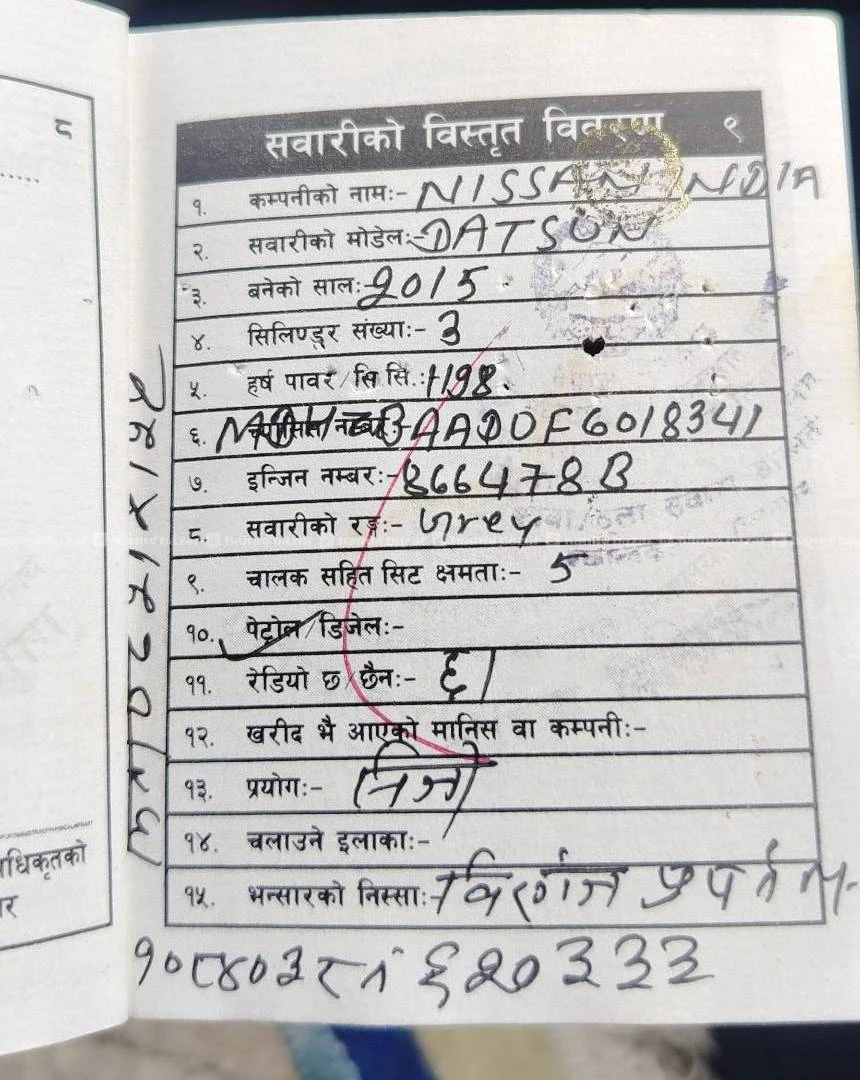 ८
धिकृतको
र
सवारीको विस्तृत विवरण ९
१. कम्पनीको नामः- NISSAN INDIA
२. सवारीको मोडेलः- DATSUN
३. बनेको सालः- 2015
४. सिलिण्डर संख्याः- 3
५. हर्ष पावर/सि सि.ः- 1198.
६. AADDF6018341
७. इन्जिन नम्बरः- 866478B
८. सवारीको रङ्गः- Grey
९. चालक सहित सिट क्षमताः- 5
१०. पेट्रोल/डिजेलः-
११. रेडियो छ/छैनः- छ।
१२. खरीद भै आएको मानिस वा कम्पनीः-
१३. प्रयोगः- निजी
१४. चलाउने इलाकाः-
१५. भन्सारको निस्साः- विरगंज